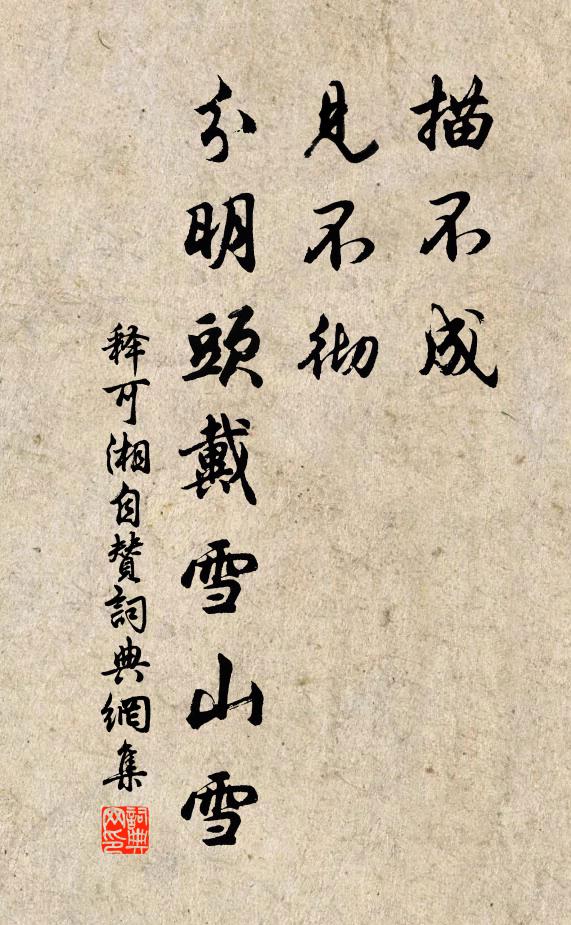 描不成
見不彻
分明頭戴雪山雪
释可湘自赞詞典網集
詞典网印